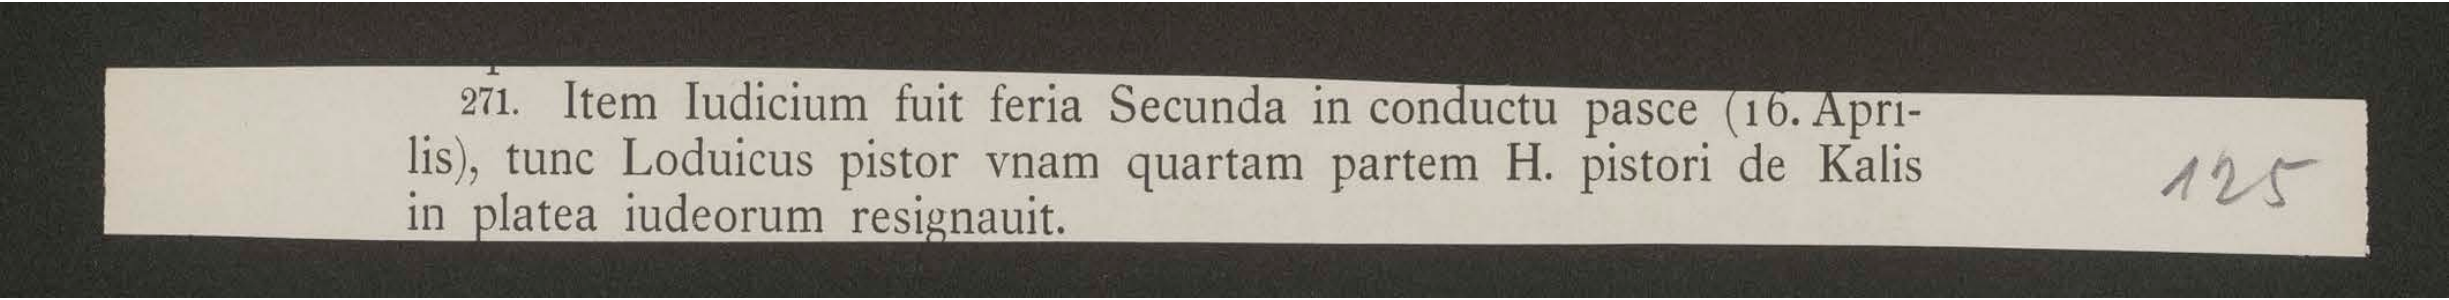 271. Item Iudicium fuit feria Secunda in conductu pasce (16. Apri-
lis), tunc Loduicus pistor vnam quartam partem H. pistori de Kalis
in platea iudeorum resignauit.
125